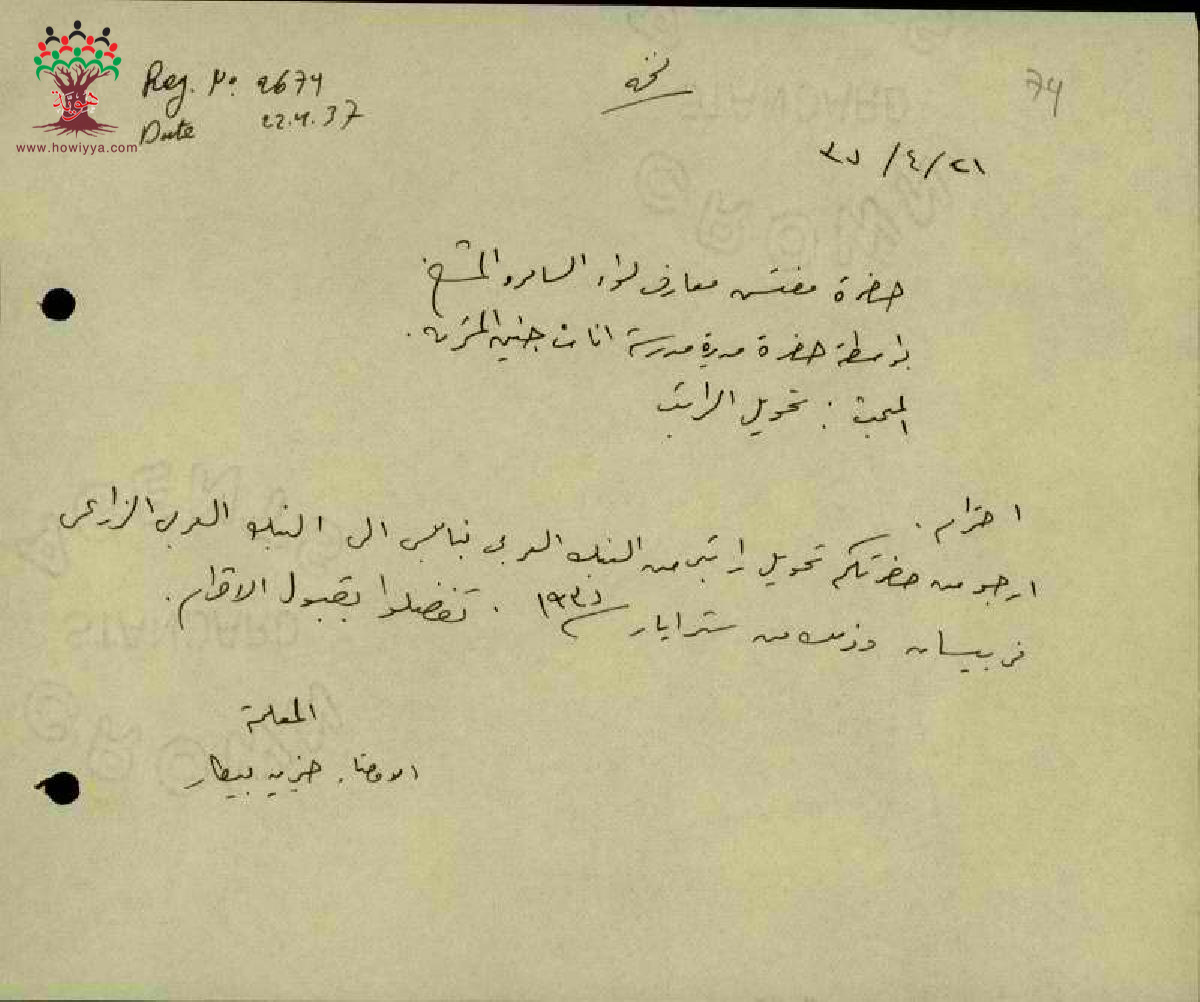 هوية
www.howiyya.com
Reg. No. 2674
Date 22.4.37
نسخة
74
٣٧/٤/٢١
حضرة مفتش معارف لواء السامرة المحترم
بواسطة حضرة مديرة مدرسة اناث جنين المحترمة.
المبحث: تحويل الراتب
احترام.
ارجو من حضرتكم تحويل راتبي من البنك العربي بنابلس الى البنك العربي الزراعي
في بيسان وذلك من شهر ايار سنة ١٩٣٧. تفضلوا بقبول الاحترام.
المعلمة
الامضاء: بيطار